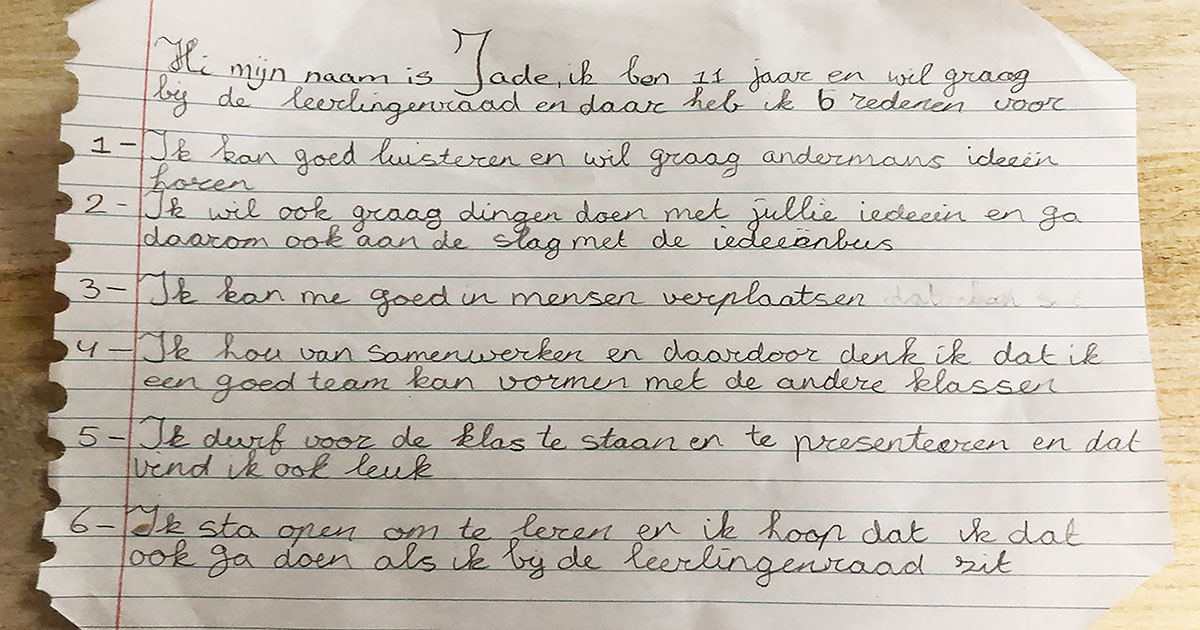 Hi mijn naam is Jade, ik ben 11 jaar en wil graag
bij de leerlingenraad en daar heb ik 6 redenen voor
1 - Ik kan goed luisteren en wil graag andermans ideeën
horen
2 - Ik wil ook graag dingen doen met jullie iedeein en ga
daarom ook aan de slag met de iedeeënbus
3 - Ik kan me goed in mensen verplaatsen
4 - Ik hou van samenwerken en daardoor denk ik dat ik
een goed team kan vormen met de andere klassen
5 - Ik durf voor de klas te staan en te presenteeren en dat
vind ik ook leuk
6 - Ik sta open om te leren en ik hoop dat ik dat
ook ga doen als ik bij de leerlingenraad zit